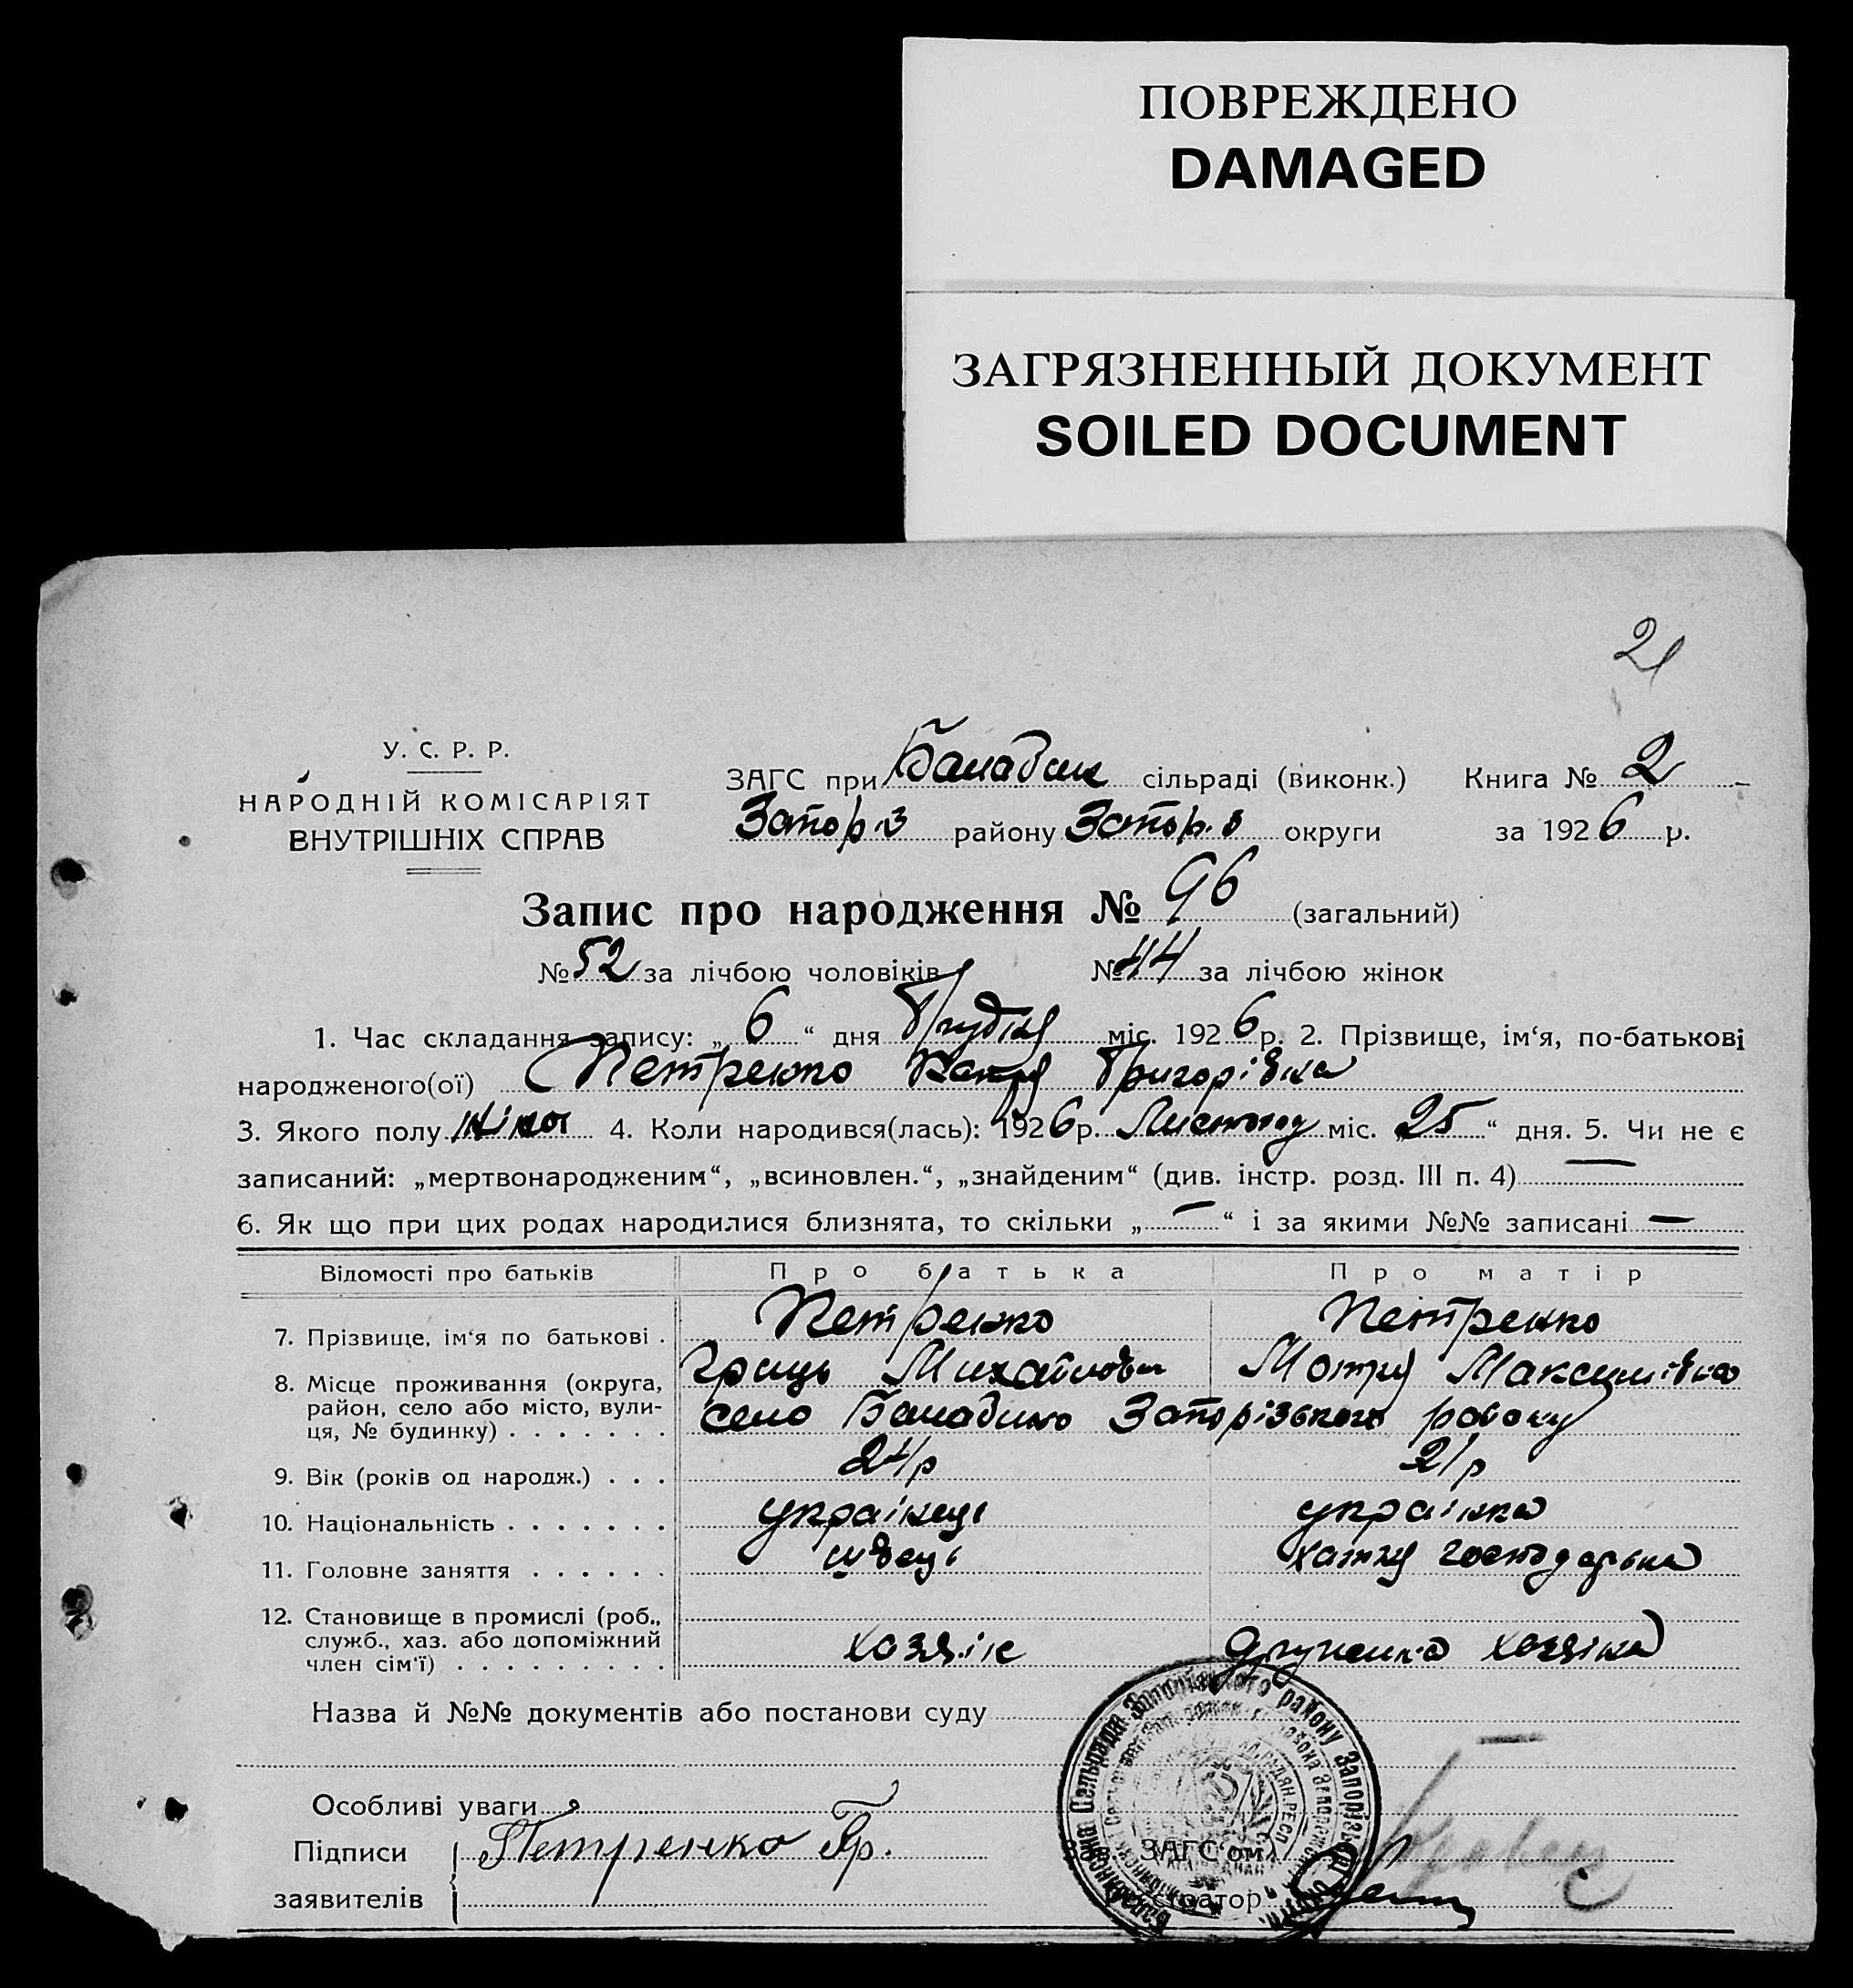 ПОВРЕЖДЕНО
DAMAGED
ЗАГРЯЗНЕННЫЙ ДОКУМЕНТ
SOILED DOCUMENT
21
У. С. Р. Р.
НАРОДНІЙ КОМІСАРІЯТ
ВНУТРІШНІХ СПРАВ
ЗАГС при Балабин сільраді (виконк.) Книга № 2
Запор.з району Запор.з округи за 1926 р.
Запис про народження № 96 (загальний)
№ 52 за лічбою чоловіків № 44 за лічбою жінок
1. Час складання запису: „6“ дня Грудня міс. 1926 р. 2. Прізвище, ім‘я, по-батькові
народженого(ої) Петренко Катря Григорівна
3. Якого полу жіноч 4. Коли народився(лась): 1926 р. Листопад міс. „25“ дня. 5. Чи не є
записаний: „мертвонародженим“, „всиновлен.“, „знайденим“ (див. інстр. розд. III п. 4) —
6. Як що при цих родах народилися близнята, то скільки „—“ і за якими №№ записані —
Відомості про батьків Про батька Про матір
7. Прізвище, ім‘я по батькові . Петренко Петренко
Гриць Михайлович Мотря Максимівна
8. Місце проживання (округа, район, село або місто, вули-
ця, № будинку) . . . . . . . село Балабино Запорізького району
9. Вік (років од народж.) . . . 24 р 21 р
10. Національність . . . . . . . українець українка
11. Головне заняття . . . . . . швець хатня господарька
12. Становище в промислі (роб.,
служб., хаз. або допоміжний
член сім‘ї) . . . . . . . . . хазяін дружина хазяіна
Назва й №№ документів або постанови суду
Особливі уваги
Підписи Петренко Гр. ЗАГС‘ом
заявителів